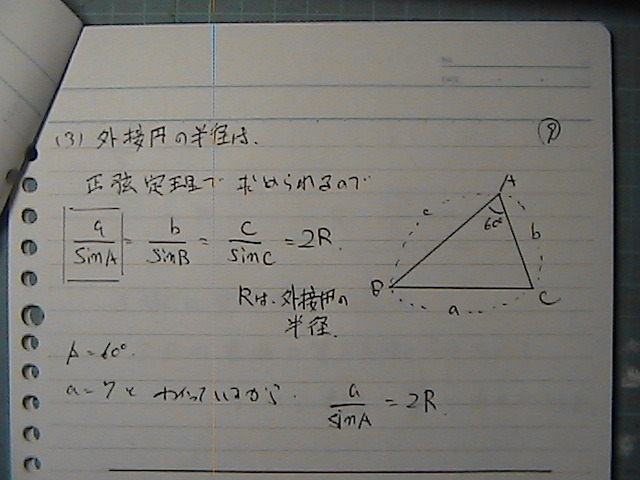 NO.
DATE
(3) 外接円の半径は.
⑨
正弦定理で 求められるので
a/sinA = b/sinB = c/sinC = 2R.
Rは、外接円の
半径.
A
60°
c
b
B
a
C
A=60°.
a=7と わかっているから. a/sinA = 2R.